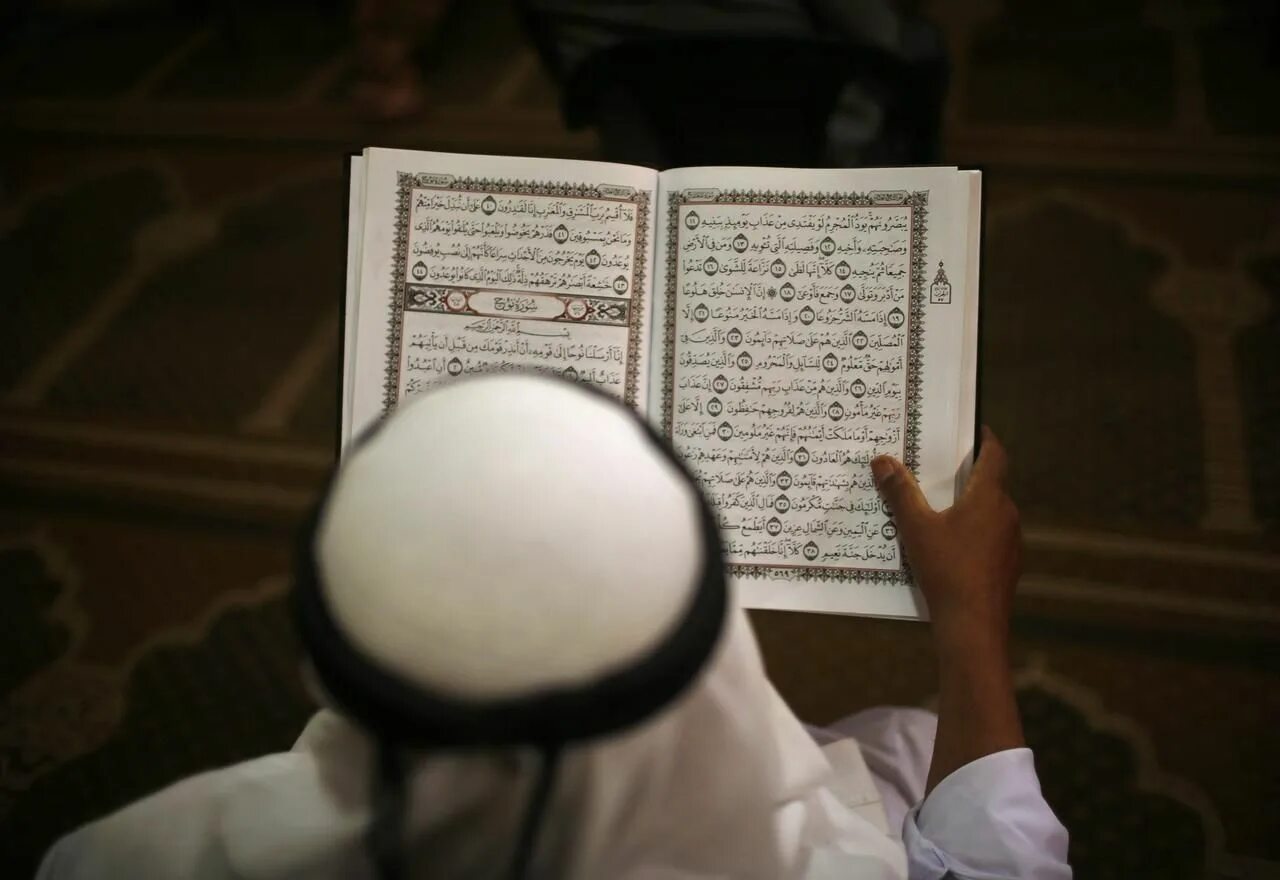 يُبَصَّرُونَهُمْ يَوَدُّ ٱلْمُجْرِمُ لَوْ يَفْتَدِى مِنْ عَذَابِ يَوْمِئِذٍۭ بِبَنِيهِ ١١
وَصَٰحِبَتِهِۦ وَأَخِيهِ ١٢ وَفَصِيلَتِهِ ٱلَّتِى تُـْٔوِيهِ ١٣ وَمَن فِى ٱلْأَرْضِ
جَمِيعًا ثُمَّ يُنجِيهِ ١٤ كَلَّآ إِنَّهَا لَظَىٰ ١٥ نَزَّاعَةً لِّلشَّوَىٰ ١٦ تَدْعُوا۟
مَنْ أَدْبَرَ وَتَوَلَّىٰ ١٧ وَجَمَعَ فَأَوْعَىٰٓ ١٨ ۞ إِنَّ ٱلْإِنسَٰنَ خُلِقَ هَلُوعًا
١٩ إِذَا مَسَّهُ ٱلشَّرُّ جَزُوعًا ٢٠ وَإِذَا مَسَّهُ ٱلْخَيْرُ مَنُوعًا ٢١ إِلَّا
ٱلْمُصَلِّينَ ٢٢ ٱلَّذِينَ هُمْ عَلَىٰ صَلَاتِهِمْ دَآئِمُونَ ٢٣ وَٱلَّذِينَ فِىٓ
أَمْوَٰلِهِمْ حَقٌّ مَّعْلُومٌ ٢٤ لِّلسَّآئِلِ وَٱلْمَحْرُومِ ٢٥ وَٱلَّذِينَ يُصَدِّقُونَ
بِيَوْمِ ٱلدِّينِ ٢٦ وَٱلَّذِينَ هُم مِّنْ عَذَابِ رَبِّهِم مُّشْفِقُونَ ٢٧ إِنَّ عَذَابَ
رَبِّهِمْ غَيْرُ مَأْمُونٍ ٢٨ وَٱلَّذِينَ هُمْ لِفُرُوجِهِمْ حَٰفِظُونَ ٢٩ إِلَّا عَلَىٰٓ
أَزْوَٰجِهِمْ أَوْ مَا مَلَكَتْ أَيْمَٰنُهُمْ فَإِنَّهُمْ غَيْرُ مَلُومِينَ ٣٠ فَمَنِ ٱبْتَغَىٰ وَرَآءَ
فَأُو۟لَٰٓئِكَ هُمُ ٱلْعَادُونَ ٣١ وَٱلَّذِينَ هُمْ لِأَمَٰنَٰتِهِمْ وَعَهْدِهِمْ رَٰعُونَ
وَٱلَّذِينَ هُم بِشَهَٰدَٰتِهِمْ قَآئِمُونَ ٣٣ وَٱلَّذِينَ هُمْ عَلَىٰ صَلَاتِهِمْ
أُو۟لَٰٓئِكَ فِى جَنَّٰتٍ مُّكْرَمُونَ ٣٥ فَمَالِ ٱلَّذِينَ كَفَرُوا۟
٣٦ عَنِ ٱلْيَمِينِ وَعَنِ ٱلشِّمَالِ عِزِينَ ٣٧ أَيَطْمَعُ
أَن يُدْخَلَ جَنَّةَ نَعِيمٍ ٣٨ كَلَّآ إِنَّا خَلَقْنَٰهُم
٥٦٩
فَلَآ أُقْسِمُ بِرَبِّ ٱلْمَشَٰرِقِ وَٱلْمَغَٰرِبِ إِنَّا لَقَٰدِرُونَ ٤٠ عَلَىٰٓ أَن نُّبَدِّلَ خَيْرًا مِّنْهُمْ
وَمَا نَحْنُ بِمَسْبُوقِينَ ٤١ فَذَرْهُمْ يَخُوضُوا۟ وَيَلْعَبُوا۟ حَتَّىٰ يُلَٰقُوا۟ يَوْمَهُمُ ٱلَّذِى
يُوعَدُونَ ٤٢ يَوْمَ يَخْرُجُونَ مِنَ ٱلْأَجْدَاثِ سِرَاعًا كَأَنَّهُمْ إِلَىٰ نُصُبٍ يُوفِضُونَ
٤٣ خَٰشِعَةً أَبْصَٰرُهُمْ تَرْهَقُهُمْ ذِلَّةٌ ذَٰلِكَ ٱلْيَوْمُ ٱلَّذِى كَانُوا۟ يُوعَدُونَ ٤٤
سُورَةُ نُوحٍ
بِسْمِ ٱللَّهِ ٱلرَّحْمَٰنِ ٱلرَّحِيمِ
إِنَّآ أَرْسَلْنَا نُوحًا إِلَىٰ قَوْمِهِۦٓ أَنْ أَنذِرْ قَوْمَكَ مِن قَبْلِ أَن يَأْتِيَهُمْ
عَذَابٌ أَلِيمٌ أَنِ ٱعْبُدُوا۟